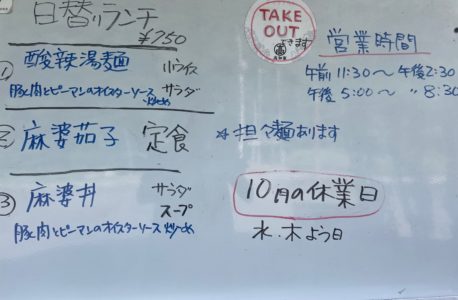 日替りランチ
¥750
① 酸辣湯麺 小ライス
豚肉とピーマンのオイスターソース炒め サラダ
② 麻婆茄子 定食
③ 麻婆丼 サラダ
スープ
豚肉とピーマンのオイスターソース炒め
TAKE
OUT
できます
営業時間
午前11:30〜午後2:30
午後5:00〜 〃 8:30
☆担々麺あります
10月の休業日
水.木よう日